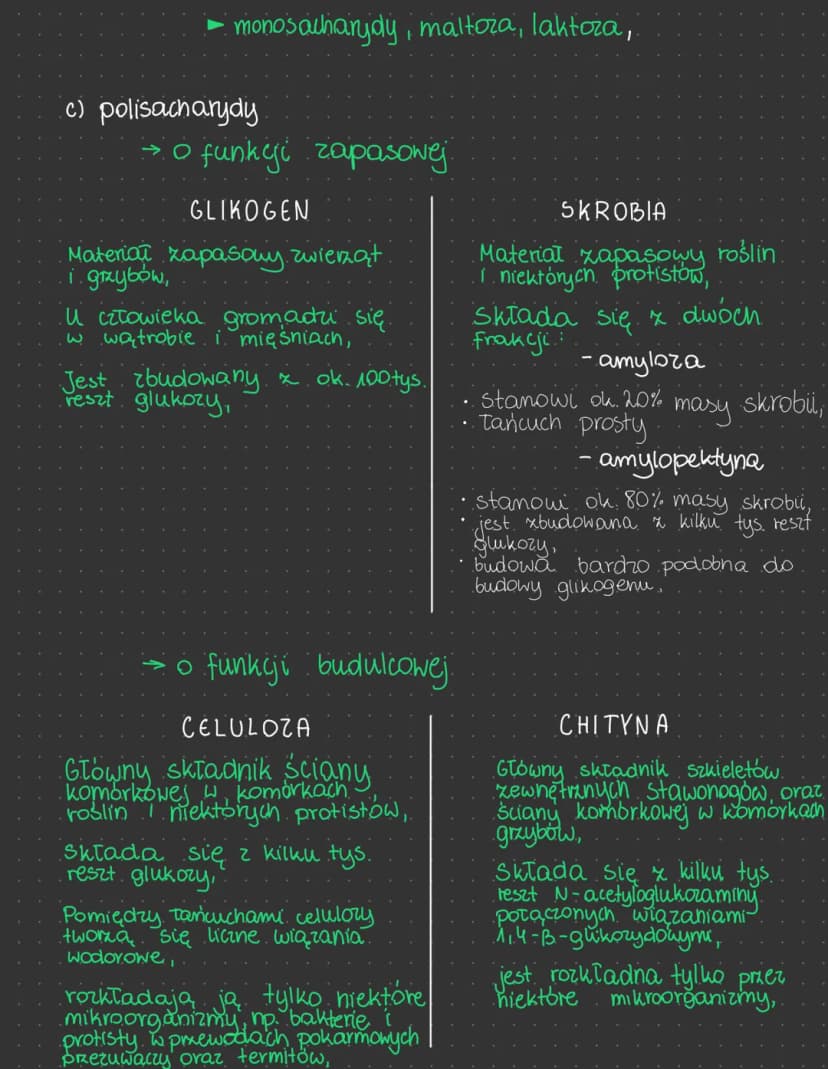 ► monosacharydy, maltoza, laktoza,
c) polisacharydy
→ o funkcji zapasowej
GLIKOGEN
Materiał zapasowy zwierząt
i grzybów,
U człowieka gromadzi się
w wątrobie i mięśniach,
Jest zbudowany z ok. 100 tys.
reszt glukozy,
SKROBIA
Materiał zapasowy roślin
i niektórych protistów,
Składa się z dwóch
frakcji:
- amyloza
• Stanowi ok. 20% masy skrobii,
• Łańcuch prosty
- amylopektyna
• stanowi ok. 80% masy skrobii,
• jest zbudowana z kilku tys. reszt
glukozy,
• budowa bardzo podobna do
budowy glikogenu,
→ o funkcji budulcowej
CELULOZA
Główny składnik ściany
komórkowej w komórkach
roślin i niektórych protistów,
Składa się z kilku tys.
reszt glukozy,
Pomiędzy łańcuchami celulozy
tworzą się liczne wiązania
wodorowe,
rozkładają ją tylko niektóre
mikroorganizmy np. bakterie i
protisty w przewodach pokarmowych
przeżuwaczy oraz termitów,
CHITYNA
Główny składnik szkieletów
zewnętrznych stawonogów oraz
ściany komórkowej w komórkach
grzybów,
Składa się z kilku tys.
reszt N-acetyloglukozaminy
połączonych wiązaniami
1,4-B-glikozydowymi,
jest rozkładna tylko przez
niektóre mikroorganizmy,